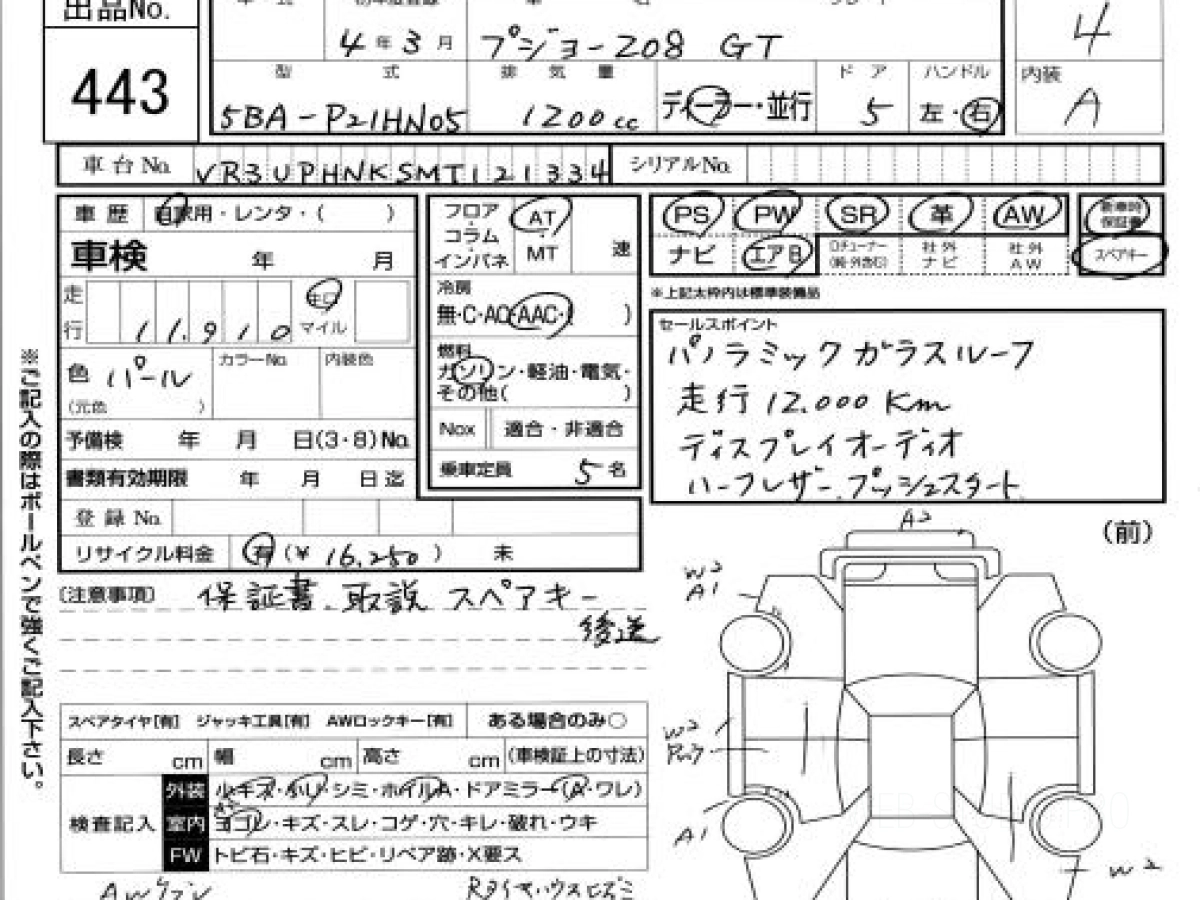 出品No.
443
4年3月 プジョー208 GT
4
型式 排気量 ドア ハンドル 内装
5BA-P21HN05 1200cc ディーラー・並行 5 左・右 A
車台No. VR3UPHNKSMT121334 シリアルNo.
車歴 自家用・レンタ・( )
車検 年 月
走行 11,910 マイル
色 パール カラーNo. 内装色
(元色 )
予備検 年 月 日(3・8)No.
書類有効期限 年 月 日迄
登録No.
リサイクル料金 有(¥ 16,250 ) 未
フロア・コラム・インパネ AT MT 速
冷房
無・C・AC・AAC・( )
燃料
ガソリン・軽油・電気・
その他( )
Nox 適合・非適合
乗車定員 5名
PS PW SR 革 AW 新車時保証書
ナビ エアB 社外ナビ 社外AW スペアキー
※上記太枠内は標準装備品
セールスポイント
パノラミックガラスルーフ
走行 12,000 Km
ディスプレイオーディオ
ハーフレザー、プッシュスタート
(前)
A2
W2
A1
W2
A1
W2
〔注意事項〕 保証書、取説 スペアキー
後送
※ご記入の際はボールペンで強くご記入下さい。
スペアタイヤ[有] ジャッキ工具[有] AWロックキー[有] ある場合のみ○
長さ cm 幅 cm 高さ cm (車検証上の寸法)
検査記入
外装 小キズ・小U・シミ・ホイルA・ドアミラー(A・ワレ)
室内 ヨゴレ・キズ・スレ・コゲ・穴・キレ・破れ・ウキ
FW トビ石・キズ・ヒビ・リペア跡・X要ス